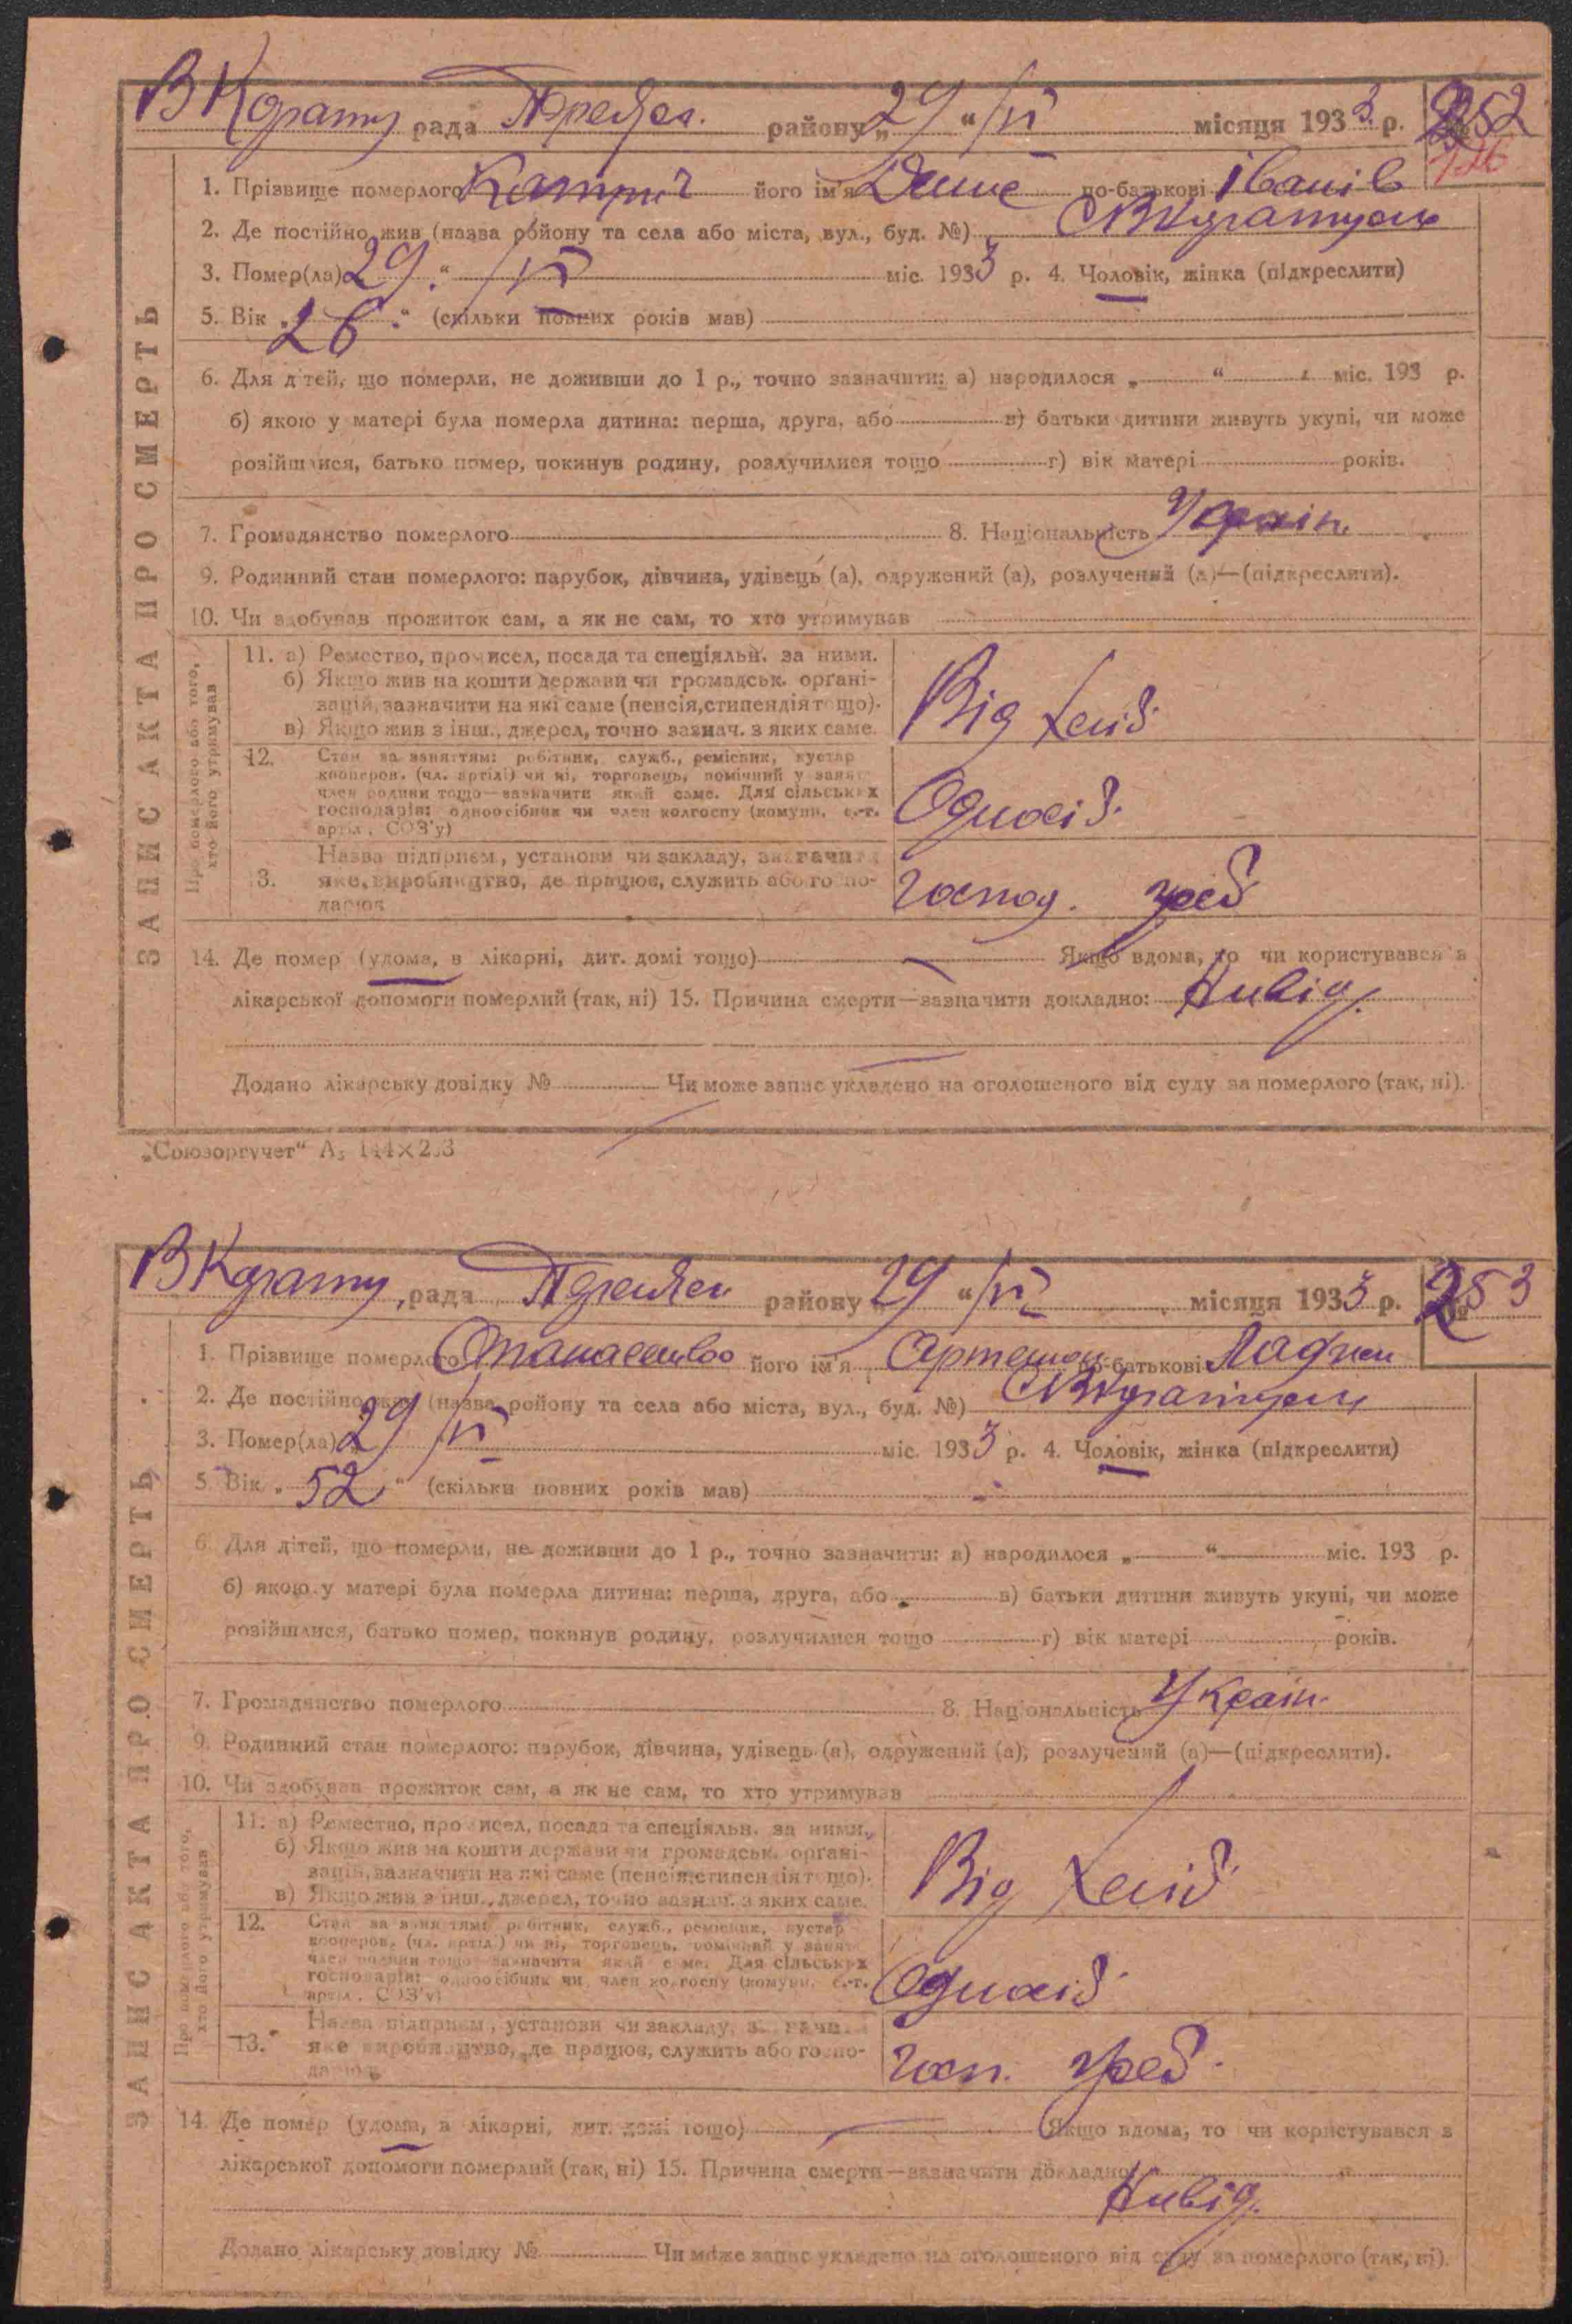 рада району „29 “ /VI місяця 1933 р. № 252
126
1. Прізвище померлого його ім'я по-батькові Іванів
2. Де постійно жив (назва району та села або міста, вул., буд. №)
3. Помер(ла) 29 “ /VI міс. 1933 р. 4. Чоловік, жінка (підкреслити)
5. Вік „ 26 “ (скільки повних років мав)
6. Для дітей, що померли, не доживши до 1 р., точно зазначити: а) народилося „ “ міс. 193 р.
б) якою у матері була померла дитина: перша, друга, або в) батьки дитини живуть укупі, чи може
розійшлися, батько помер, покинув родину, розлучилися тощо г) вік матері років.
7. Громадянство померлого 8. Національність Україн.
9. Родинний стан померлого: парубок, дівчина, удівець (а), одружений (а), розлучений (а)—(підкреслити).
10. Чи здобував прожиток сам, а як не сам, то хто утримував
ЗАПИС АКТА ПРО СМЕРТЬ
Про померлого або того,
хто його утримував
11. а) Ремество, промисел, посада та спеціяльн. за ними.
б) Якщо жив на кошти держави чи громадськ. орґані-
зацій, зазначити на які саме (пенсія, стипендія тощо).
в) Якщо жив з інш., джерел, точно зазнач. з яких саме.
Від
12. Стан за заняттям: робітник, служб., ремісник, кустар
кооперов. (чл. артілі) чи ні, торговець, помічний у занят.
член родини тощо—зазначити який саме. Для сільських
господарів: одноосібник чи член колгоспу (комуни, с.-г.
артіл, СОЗ'у)
Одноосіб.
13. Назва підприєм., установи чи закладу, зазначити
яке, виробництво, де працює, служить або госпо-
дарює
Господ.
14. Де помер (удома, в лікарні, дит. домі тощо) Якщо вдома, то чи користувався з
лікарської допомоги померлий (так, ні) 15. Причина смерти—зазначити докладно:
Додано лікарську довідку № Чи може запис укладено на оголошеного від суду за померлого (так, ні).
„Союзоргучет“ А₅ 144×203
рада району 29 “ /VI місяця 1933 р. № 253
1. Прізвище померлого його ім'я Артемон по-батькові
2. Де постійно жив (назва району та села або міста, вул., буд. №)
3. Помер(ла) 29 /VI міс. 1933 р. 4. Чоловік, жінка (підкреслити)
5. Вік „ 52 “ (скільки повних років мав)
6. Для дітей, що померли, не доживши до 1 р., точно зазначити: а) народилося „ “ міс. 193 р.
б) якою у матері була померла дитина: перша, друга, або в) батьки дитини живуть укупі, чи може
розійшлися, батько помер, покинув родину, розлучилися тощо г) вік матері років.
7. Громадянство померлого 8. Національність Україн.
9. Родинний стан померлого: парубок, дівчина, удівець (а), одружений (а), розлучений (а)—(підкреслити).
10. Чи здобував прожиток сам, а як не сам, то хто утримував
ЗАПИС АКТА ПРО СМЕРТЬ
Про померлого або того,
хто його утримував
11. а) Ремество, промисел, посада та спеціяльн. за ними.
б) Якщо жив на кошти держави чи громадськ. орґані-
зацій, зазначити на які саме (пенсія, стипендія тощо).
в) Якщо жив з інш., джерел, точно зазнач. з яких саме.
Від
12. Стан за заняттям: робітник, служб., ремісник, кустар
кооперов. (чл. артілі) чи ні, торговець, помічний у занят.
член родини тощо—зазначити який саме. Для сільських
господарів: одноосібник чи член колгоспу (комуни, с.-г.
артіл, СОЗ'у)
Одноосіб.
13. Назва підприєм., установи чи закладу, зазначити
яке виробництво, де працює, служить або госпо-
дарює
Госп.
14. Де помер (удома, в лікарні, дит. домі тощо) Якщо вдома, то чи користувався з
лікарської допомоги померлий (так, ні) 15. Причина смерти—зазначити докладно:
Додано лікарську довідку № Чи може запис укладено на оголошеного від суду за померлого (так, ні).